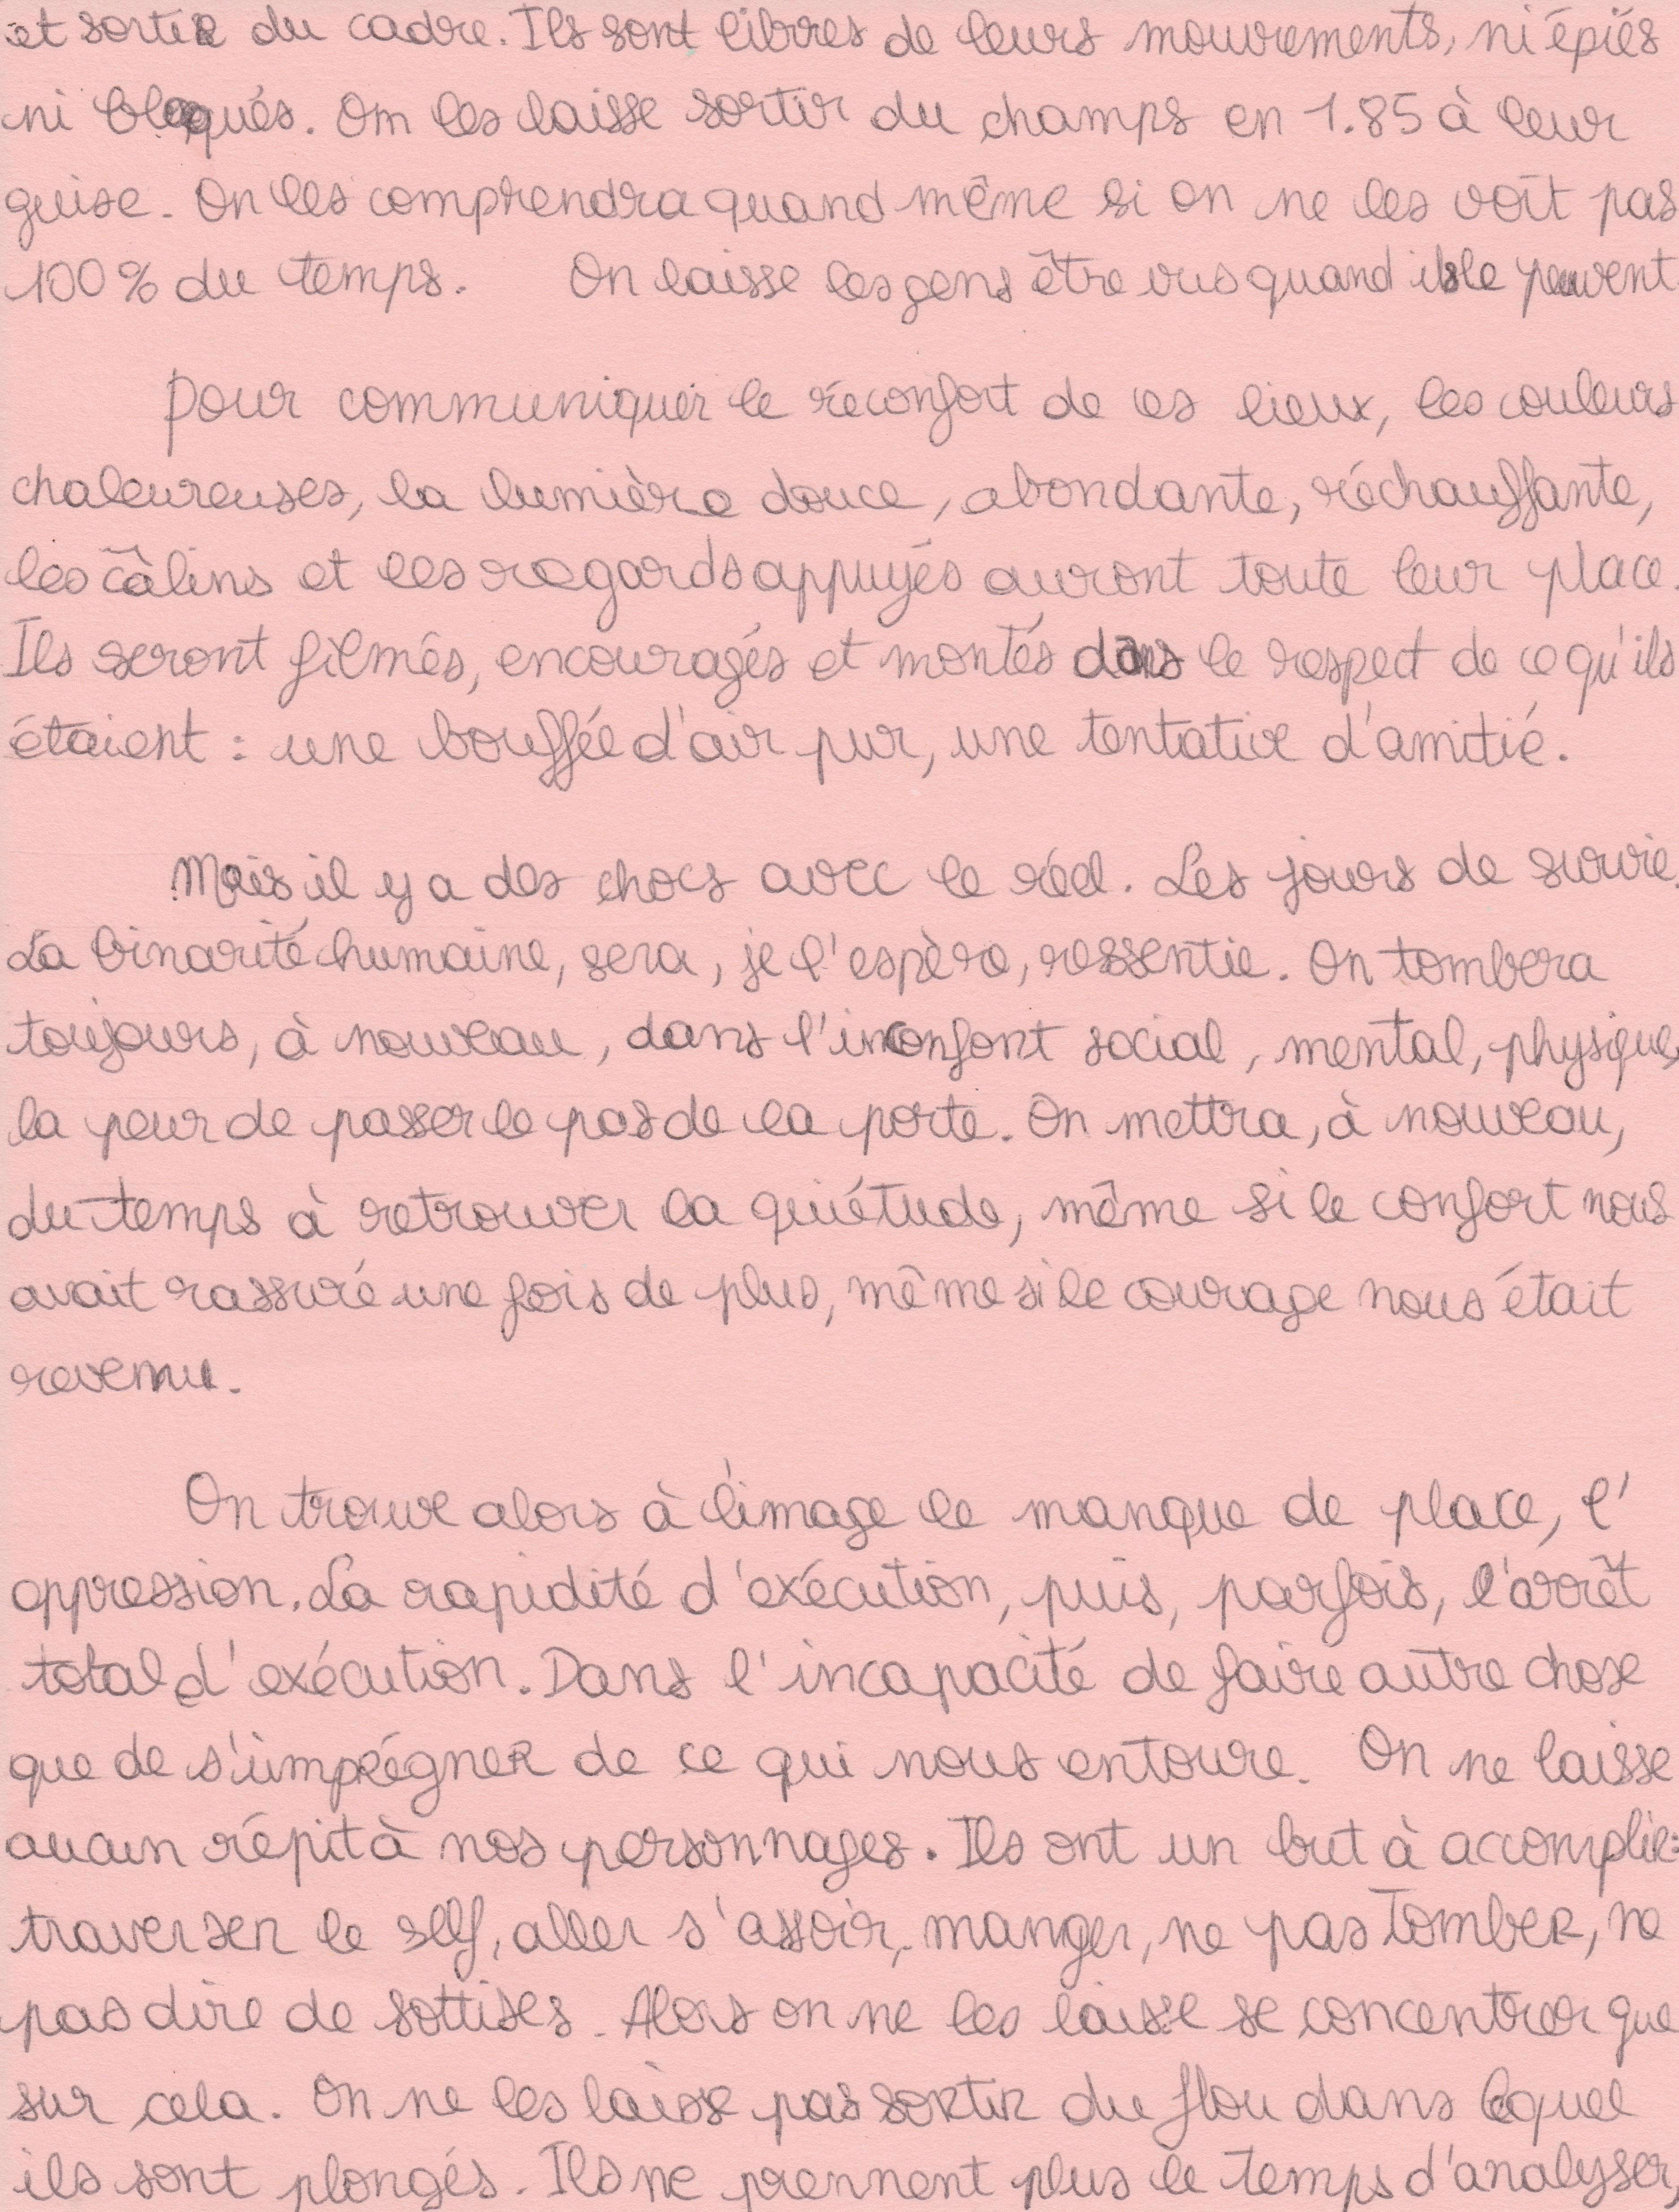 et sortir du cadre. Ils sont libres de leurs mouvements, ni épiés
ni bloqués. On les laisse sortir du champs en 1.85 à leur
guise. On les comprendra quand même si on ne les voit pas
100% du temps. On laisse les gens être vus quand ils le peuvent
Pour communiquer le réconfort de ces lieux, les couleurs
chaleureuses, la lumière douce, abondante, réchauffante,
les câlins et les regards appuyés auront toute leur place.
Ils seront filmés, encouragés et montés dans le respect de ce qu'ils
étaient : une bouffée d'air pur, une tentative d'amitié.
Mais il y a des chocs avec le réel. Les jours de survie.
La binarité humaine, sera, je l'espère, ressentie. On tombera
toujours, à nouveau, dans l'inconfort social, mental, physique,
la peur de passer le pas de la porte. On mettra, à nouveau,
du temps à retrouver la quiétude, même si le confort nous
avait rassuré une fois de plus, même si le courage nous était
revenu.
On trouve alors à l'image le manque de place, l'
oppression. La rapidité d'exécution, puis, parfois, l'arrêt
total d'exécution. Dans l'incapacité de faire autre chose
que de s'imprégner de ce qui nous entoure. On ne laisse
aucun répit à nos personnages. Ils ont un but à accomplir :
traverser le self, aller s'assoir, manger, ne pas tomber, ne
pas dire de sottises. Alors on ne les laisse se concentrer que
sur cela. On ne les laisse pas sortir du flou dans lequel
ils sont plongés. Ils ne prennent plus le temps d'analyser,